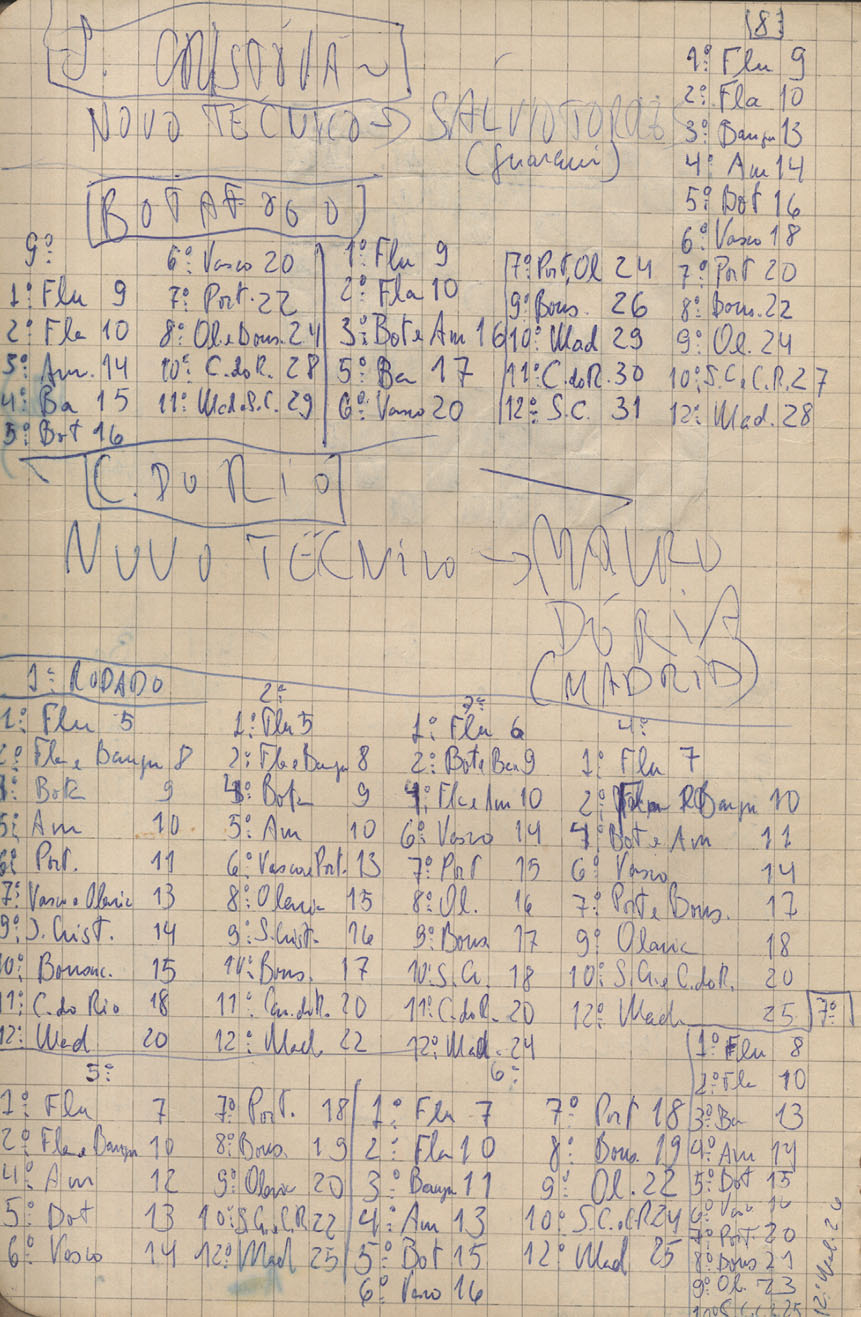 S. CRISTÓVÃO
NOVO TÉCNICO → SÁLVIO
(Guarani)
[8]
1º Flu 9
2º Fla 10
3º Bangu 13
4º Am 14
5º Bot 16
6º Vasco 18
7º Port 20
8º Bons. 22
9º Ol. 24
10º S.C. e C.R. 27
12º Mad. 28
BOTAFOGO
9º
1º Flu 9
2º Fla 10
3º Am. 14
4º Ba 15
5º Bot 16
6º Vasco 20
7º Port. 22
8º Ol e Bons. 24
10º C. do R. 28
11º Mad. e S.C. 29
1º Flu 9
2º Fla 10
3º Bot e Am 16
5º Ba 17
6º Vasco 20
7º Port, Ol 24
9º Bons. 26
10º Mad 29
11º C. do R. 30
12º S.C. 31
C. DO RIO
NOVO TÉCNICO → MAURO
DÓRIA
(MADRID)
1ª RODADO
1º Flu 5
2º Fla e Bangu 8
4º Bota 9
5º Am 10
6º Port. 11
7º Vasco e Olaria 13
9º S. Crist. 14
10º Bonsuc. 15
11º C. do Rio 18
12º Mad 20
2ª
1º Flu 5
2º Fla e Bangu 8
4º Bota 9
5º Am 10
6º Vasco e Port. 13
8º Olaria 15
9º S. Crist. 16
10º Bons. 17
11º Can. do R. 20
12º Mad. 22
3ª
1º Flu 6
2º Bot e Ban 9
4º Fla e Am 10
6º Vasco 14
7º Port 15
8º Ol. 16
9º Bons 17
10º S.C. 18
11º C. do R. 20
12º Mad. 24
4ª
1º Flu 7
2º Bangu 10
4º Bot e Am 11
6º Vasco 14
7º Port e Bons. 17
9º Olaria 18
10º S.C. e C. do R. 20
12º Mad 25
5ª
1º Flu 7
2º Fla e Bangu 10
4º Am 12
5º Bot 13
6º Vasco 14
7º Port. 18
8º Bons. 19
9º Olaria 20
10º S.C. e C.R 22
12º Mad 25
6ª
1º Flu 7
2º Fla 10
3º Bangu 11
4º Am 13
5º Bot 15
6º Vasco 16
7º Port 18
8º Bons. 19
9º Ol. 22
10º S.C. e C.R 24
12º Mad 25
7ª
1º Flu 8
2º Fla 10
3º Ba 13
4º Am 14
5º Bot 15
6º Vasco 16
7º Port. 20
8º Bons 21
9º Ol. 23
12º Mad. 26